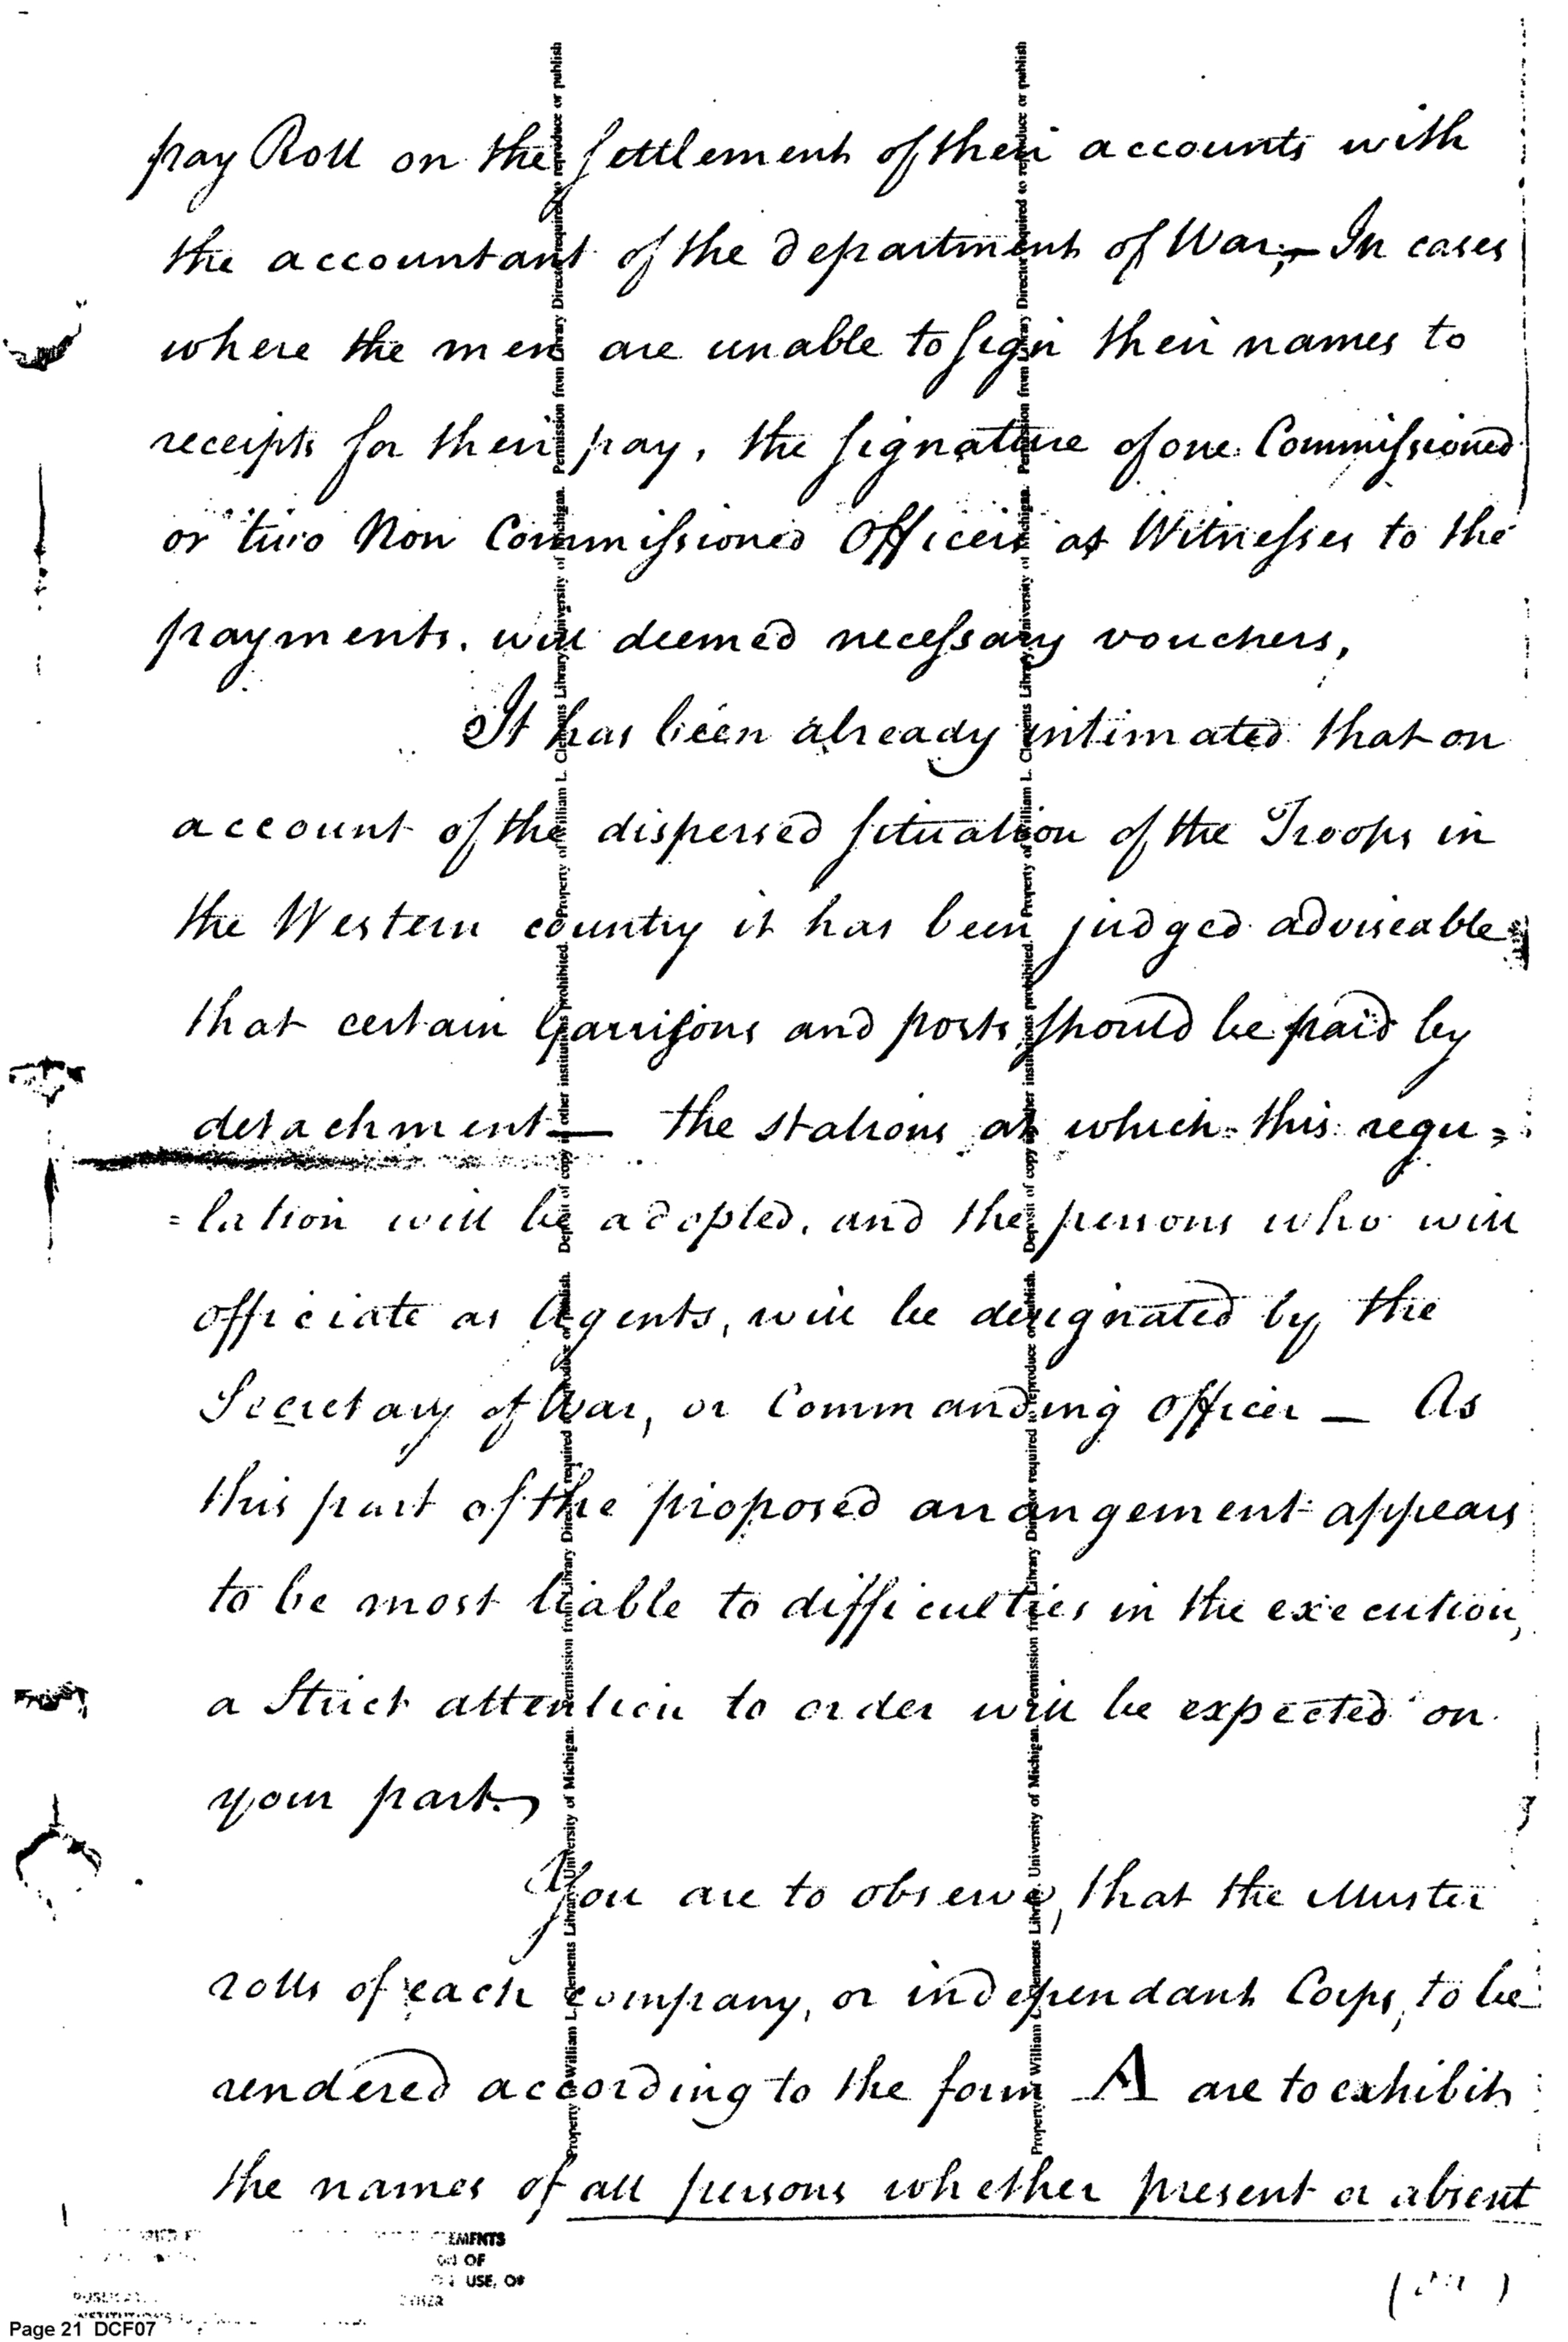 pay Roll on the settlement of their accounts with
the accountant of the department of War;— In cases
where the men are unable to sign their names to
receipts for their pay, the signature of one Commissioned
or two Non Commissioned Officers as Witnesses to the
payments. will deemed necessary vouchers,
It has been already intimated that on
account of the dispersed situation of the Troops in
the Western country it has been judged adviseable
that certain Garrisons and posts should be paid by
detachment — the stations at which this regu=
=lation will be adopted, and the persons who will
officiate as Agents, will be designated by the
Secretary of War, or Commanding officer — As
this part of the proposed arrangement appears
to be most liable to difficulties in the execution,
a Strict attention to order will be expected on
your part.
You are to observe, that the Muster
rolls of each company, or independant Corps, to be
rendered according to the form A are to exhibit
the names of all persons whether present or absent
Property of William L. Clements Library, University of Michigan. Permission from Library Director required to reproduce or publish. Deposit of copy in other institutions prohibited. Property of William L. Clements Library, University of Michigan. Permission from Library Director required to reproduce or publish
Property of William L. Clements Library, University of Michigan. Permission from Library Director required to reproduce or publish. Deposit of copy in other institutions prohibited. Property of William L. Clements Library, University of Michigan. Permission from Library Director required to reproduce or publish
OF
USE, OR
Page 21 DCF07